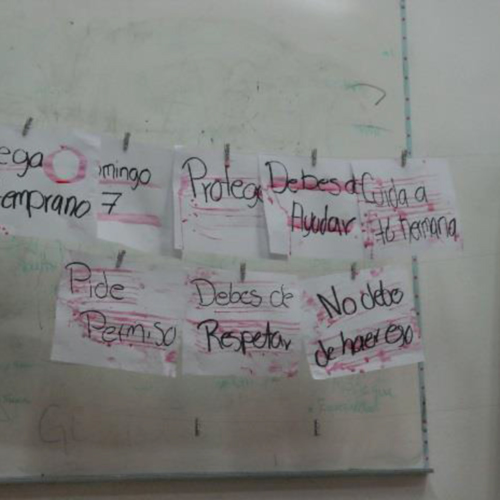 ega
emprano
mingo
7
Proteg
Debes d
Ayudar
Cuida a
tú hermana
Pide
Permiso
Debes de
Respetar
No debo
de hacer eso